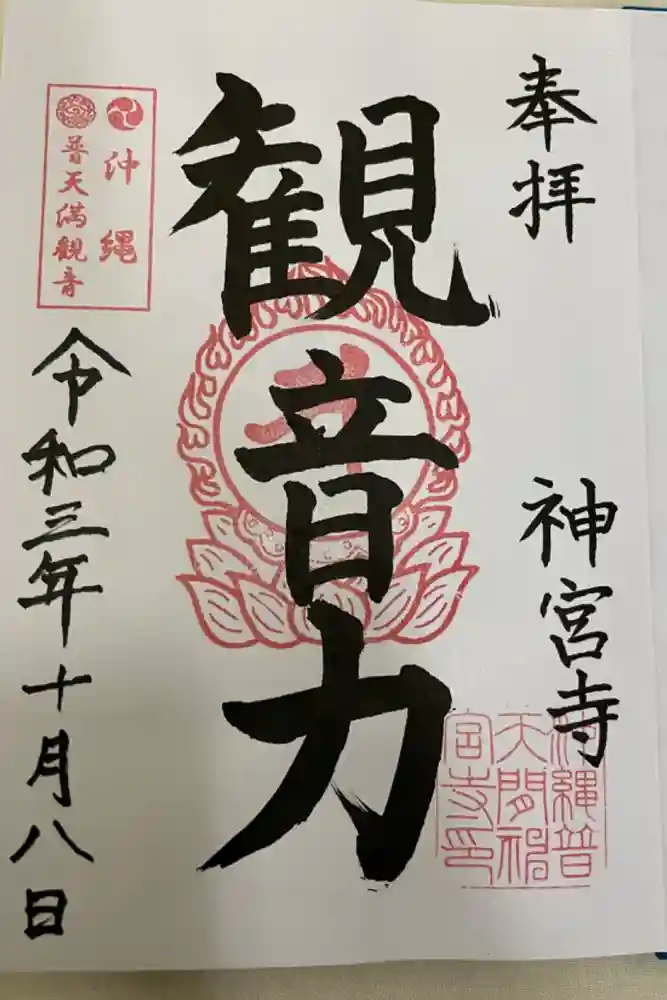 奉拝
神宮寺
沖縄普
天間神
宮寺印
観音力
沖縄
普天満観音
令和三年十月八日